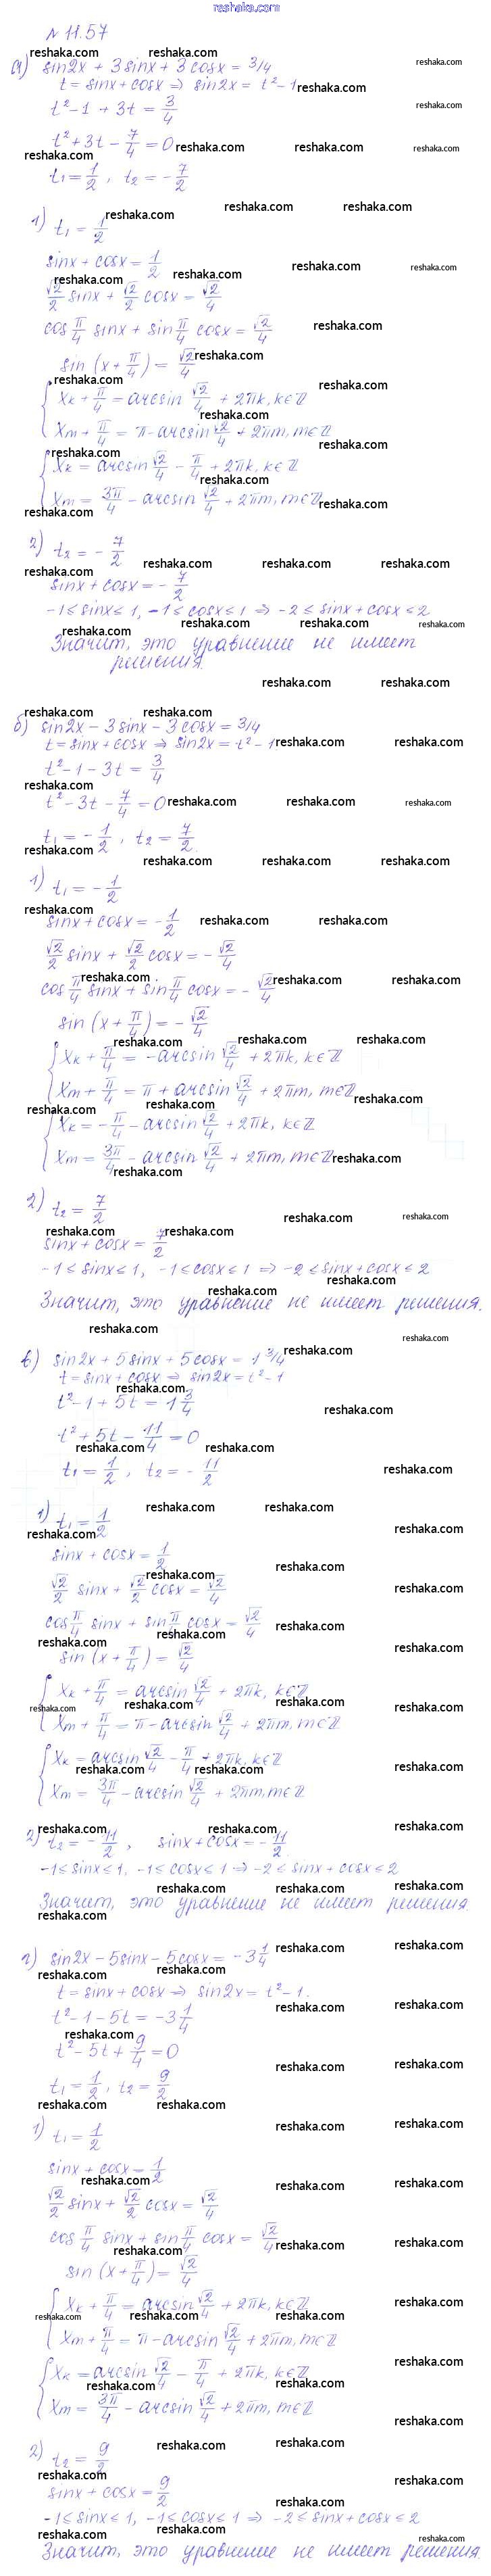 reshaka.com
№ 11.57
а) sin2x + 3sinx + 3cosx = 3/4
t = sinx + cosx ⇒ sin2x = t² - 1
t² - 1 + 3t = 3/4
t² + 3t - 7/4 = 0
t₁ = 1/2, t₂ = - 7/2
1) t₁ = 1/2
sinx + cosx = 1/2
√2/2 sinx + √2/2 cosx = √2/4
cos π/4 sinx + sin π/4 cosx = √2/4
sin (x + π/4) = √2/4
{ xₖ + π/4 = arcsin √2/4 + 2πk, k∈ℤ
xₘ + π/4 = π - arcsin √2/4 + 2πm, m∈ℤ
{ xₖ = arcsin √2/4 - π/4 + 2πk, k∈ℤ
xₘ = 3π/4 - arcsin √2/4 + 2πm, m∈ℤ
2) t₂ = - 7/2
sinx + cosx = - 7/2
-1 ≤ sinx ≤ 1, -1 ≤ cosx ≤ 1 ⇒ -2 ≤ sinx + cosx ≤ 2
Значит, это уравнение не имеет
решения.
б) sin2x - 3sinx - 3cosx = 3/4
t = sinx + cosx ⇒ sin2x = t² - 1
t² - 1 - 3t = 3/4
t² - 3t - 7/4 = 0
t₁ = - 1/2, t₂ = 7/2.
1) t₁ = - 1/2
sinx + cosx = - 1/2
√2/2 sinx + √2/2 cosx = - √2/4
cos π/4 sinx + sin π/4 cosx = - √2/4
sin (x + π/4) = - √2/4
{ xₖ + π/4 = -arcsin √2/4 + 2πk, k∈ℤ
xₘ + π/4 = π + arcsin √2/4 + 2πm, m∈ℤ
{ xₖ = - π/4 - arcsin √2/4 + 2πk, k∈ℤ
xₘ = 3π/4 - arcsin √2/4 + 2πm, m∈ℤ
2) t₂ = 7/2
sinx + cosx = 7/2
-1 ≤ sinx ≤ 1, -1 ≤ cosx ≤ 1 ⇒ -2 ≤ sinx + cosx ≤ 2
Значит, это уравнение не имеет решения.
в) sin2x + 5sinx + 5cosx = 1 3/4
t = sinx + cosx ⇒ sin2x = t² - 1
t² - 1 + 5t = 1 3/4
t² + 5t - 11/4 = 0
t₁ = 1/2, t₂ = - 11/2
1) t₁ = 1/2
sinx + cosx = 1/2
√2/2 sinx + √2/2 cosx = √2/4
cos π/4 sinx + sin π/4 cosx = √2/4
sin (x + π/4) = √2/4
{ xₖ + π/4 = arcsin √2/4 + 2πk, k∈ℤ
xₘ + π/4 = π - arcsin √2/4 + 2πm, m∈ℤ
{ xₖ = arcsin √2/4 - π/4 + 2πk, k∈ℤ
xₘ = 3π/4 - arcsin √2/4 + 2πm, m∈ℤ
2) t₂ = - 11/2, sinx + cosx = - 11/2.
-1 ≤ sinx ≤ 1, -1 ≤ cosx ≤ 1 ⇒ -2 ≤ sinx + cosx ≤ 2
Значит, это уравнение не имеет решения.
г) sin2x - 5sinx - 5cosx = -3 1/4
t = sinx + cosx ⇒ sin2x = t² - 1.
t² - 1 - 5t = -3 1/4
t² - 5t + 9/4 = 0
t₁ = 1/2, t₂ = 9/2
1) t₁ = 1/2
sinx + cosx = 1/2
√2/2 sinx + √2/2 cosx = √2/4
cos π/4 sinx + sin π/4 cosx = √2/4
sin (x + π/4) = √2/4
{ xₖ + π/4 = arcsin √2/4 + 2πk, k∈ℤ
xₘ + π/4 = π - arcsin √2/4 + 2πm, m∈ℤ
{ xₖ = arcsin √2/4 - π/4 + 2πk, k∈ℤ
xₘ = 3π/4 - arcsin √2/4 + 2πm, m∈ℤ
2) t₂ = 9/2
sinx + cosx = 9/2
-1 ≤ sinx ≤ 1, -1 ≤ cosx ≤ 1 ⇒ -2 ≤ sinx + cosx ≤ 2
Значит, это уравнение не имеет решения.